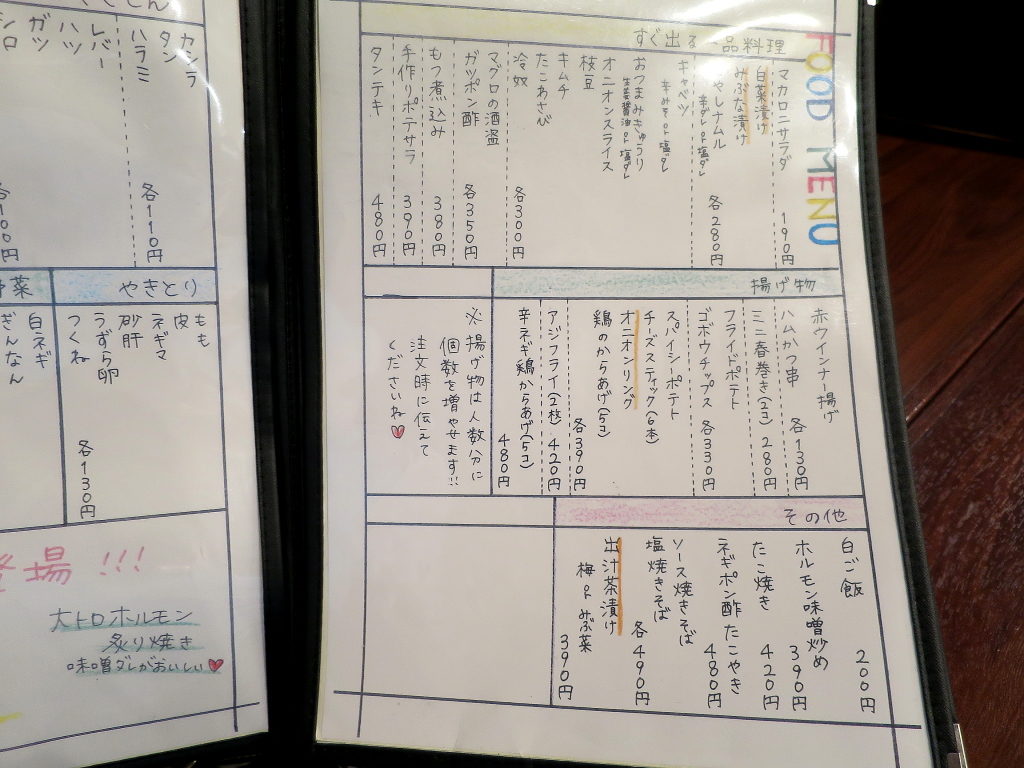 FOOD MENU
すぐ出る一品料理
マカロニサラダ 190円
白菜漬け
みぶな漬け
もやしナムル 各280円
キャベツ
辛みそor塩ダレ
おつまみきゅうり
生姜醤油or塩ダレ
オニオンスライス
枝豆
キムチ
たこわさび
冷奴 各300円
マグロの酒盗
ガツポン酢 各350円
もつ煮込み 380円
手作りポテサラ 390円
タンテキ 480円
揚げ物
赤ウインナー揚げ
ハムかつ串 各130円
ミニ春巻き(2コ) 280円
フライドポテト
ゴボウチップス 各330円
スパイシーポテト
チーズスティック(6本)
オニオンリング
鶏のからあげ(5コ) 各390円
アジフライ(2枚) 420円
辛ネギ鶏からあげ(5コ) 480円
※揚げ物は人数分に
個数を増やせます!!
注文時に伝えて
くださいね♥
その他
白ご飯 200円
ホルモン味噌炒め 390円
たこ焼き 420円
ネギポン酢たこやき 480円
ソース焼きそば
塩焼きそば 各490円
出汁茶漬け
梅orみぶ菜 390円
カシラ
タン
ハラミ 各110円
レバー
ハツ
ガツ
シロ
各100円
やきとり
もも
皮
ネギマ
砂肝
うずら卵
つくね 各130円
野菜
白ネギ
ぎんなん
登場!!!
大トロホルモン
炙り焼き
味噌ダレがおいしい♥